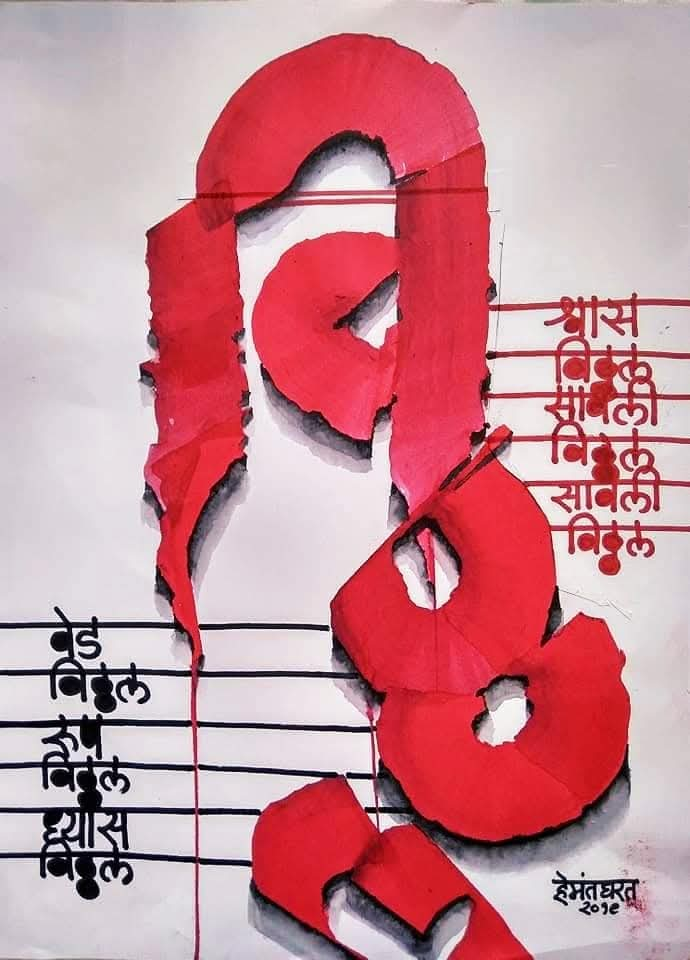 विठ्ठल
श्वास
विठ्ठल
सावली
विठ्ठल
सावली
विठ्ठल
वेड
विठ्ठल
रुप
विठ्ठल
ध्यास
विठ्ठल
हेमंत घरत
२०१९